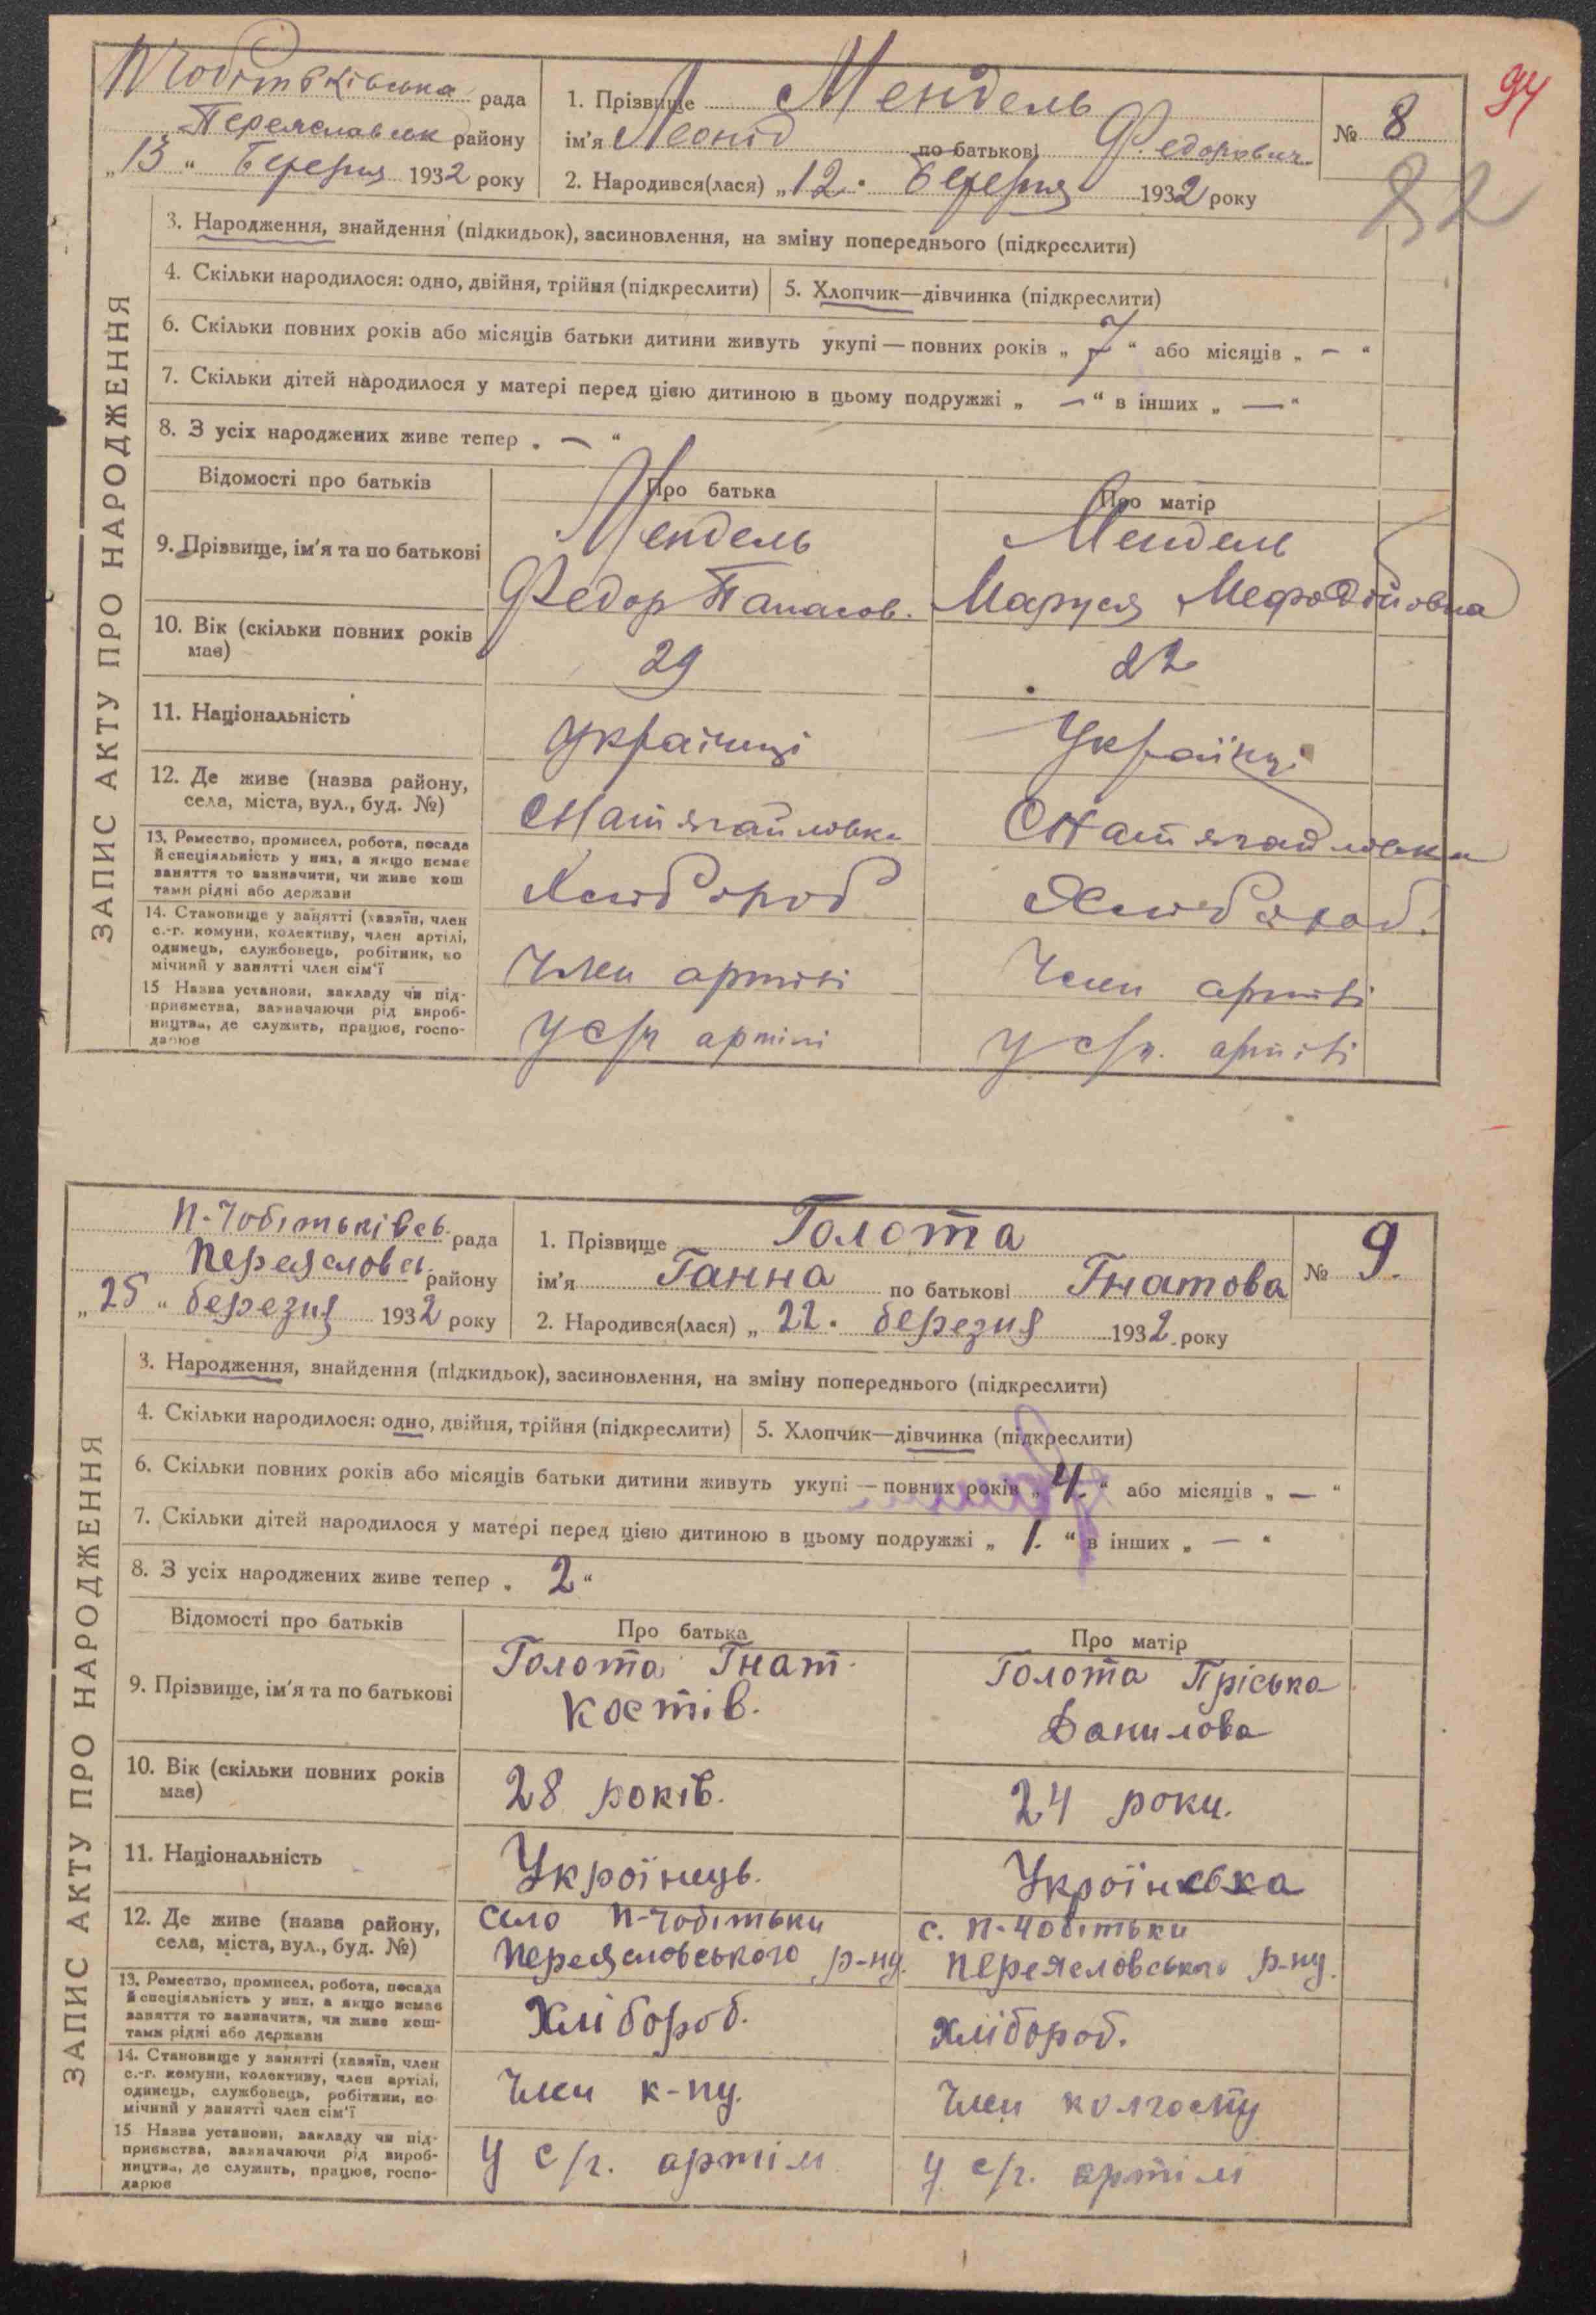 94
82
П Чобітьківська рада
Переяславськ району
„13“ Березня 1932 року
1. Прізвище Мендель
ім'я Леонід по батькові Федорович
2. Народився(лася) „12. березня 1932 року
№ 8
ЗАПИС АКТУ ПРО НАРОДЖЕННЯ
3. Народження, знайдення (підкидьок), засиновлення, на зміну попереднього (підкреслити)
4. Скільки народилося: одно, двійня, трійня (підкреслити) 5. Хлопчик—дівчинка (підкреслити)
6. Скільки повних років або місяців батьки дитини живуть укупі — повних років „ 7 “ або місяців „ – “
7. Скільки дітей народилося у матері перед цією дитиною в цьому подружжі „ — “ в інших „ — “
8. З усіх народжених живе тепер „ — “
Відомості про батьків Про батька Про матір
9. Прізвище, ім'я та по батькові
Мендель
Федор Панасов.
Мендель
Маруся Мефодійовна
10. Вік (скільки повних років
має)
29
22
11. Національність
українці
Українці
12. Де живе (назва району,
села, міста, вул., буд. №)
13. Ремество, промисел, робота, посада
й спеціяльність у них, а якщо немає
заняття то зазначити, чи живе кош
тами рідні або держави
Хлібороб
Хлібороб.
14. Становище у занятті (хазяїн, член
с.-г. комуни, колективу, член артілі,
одинець, службовець, робітник, по
мічний у занятті член сім'ї
Член артілі
Член артілі
15 Назва установи, закладу чи під-
приємства, зазначаючи рід вироб-
ництва, де служить, працює, госпо-
дарює
У с/г артілі
У с/г. артілі
П-Чобітьківсь. рада
Переясловсь. району
„25“ березня 1932 року
1. Прізвище Голота
ім'я Ганна по батькові Гнатова
2. Народився(лася) „ 22. березня 1932 року
№ 9.
ЗАПИС АКТУ ПРО НАРОДЖЕННЯ
3. Народження, знайдення (підкидьок), засиновлення, на зміну попереднього (підкреслити)
4. Скільки народилося: одно, двійня, трійня (підкреслити) 5. Хлопчик—дівчинка (підкреслити)
6. Скільки повних років або місяців батьки дитини живуть укупі — повних років „ 4. “ або місяців „ — “
7. Скільки дітей народилося у матері перед цією дитиною в цьому подружжі „ 1. “ в інших „ — “
8. З усіх народжених живе тепер „ 2 “
Відомості про батьків Про батька Про матір
9. Прізвище, ім'я та по батькові
Голота Гнат.
Костів.
Голота Пріська
Данилова
10. Вік (скільки повних років
має)
28 років.
24 роки.
11. Національність
Українець.
Українська
12. Де живе (назва району,
села, міста, вул., буд. №)
село П-Чобітьки
Переясловського р-ну.
с. П-Чобітьки
Переясловського р-ну.
13. Ремество, промисел, робота, посада
й спеціяльність у них, а якщо немає
заняття то зазначити, чи живе кош-
тами рідні або держави
Хлібороб.
Хлібороб.
14. Становище у занятті (хазяїн, член
с.-г. комуни, колективу, член артілі,
одинець, службовець, робітник, по
мічний у занятті член сім'ї
Член к-пу.
Член колгоспу
15 Назва установи, закладу чи під-
приємства, зазначаючи рід вироб-
ництва, де служить, працює, госпо-
дарює
У с/г. артілі
У с/г. артілі